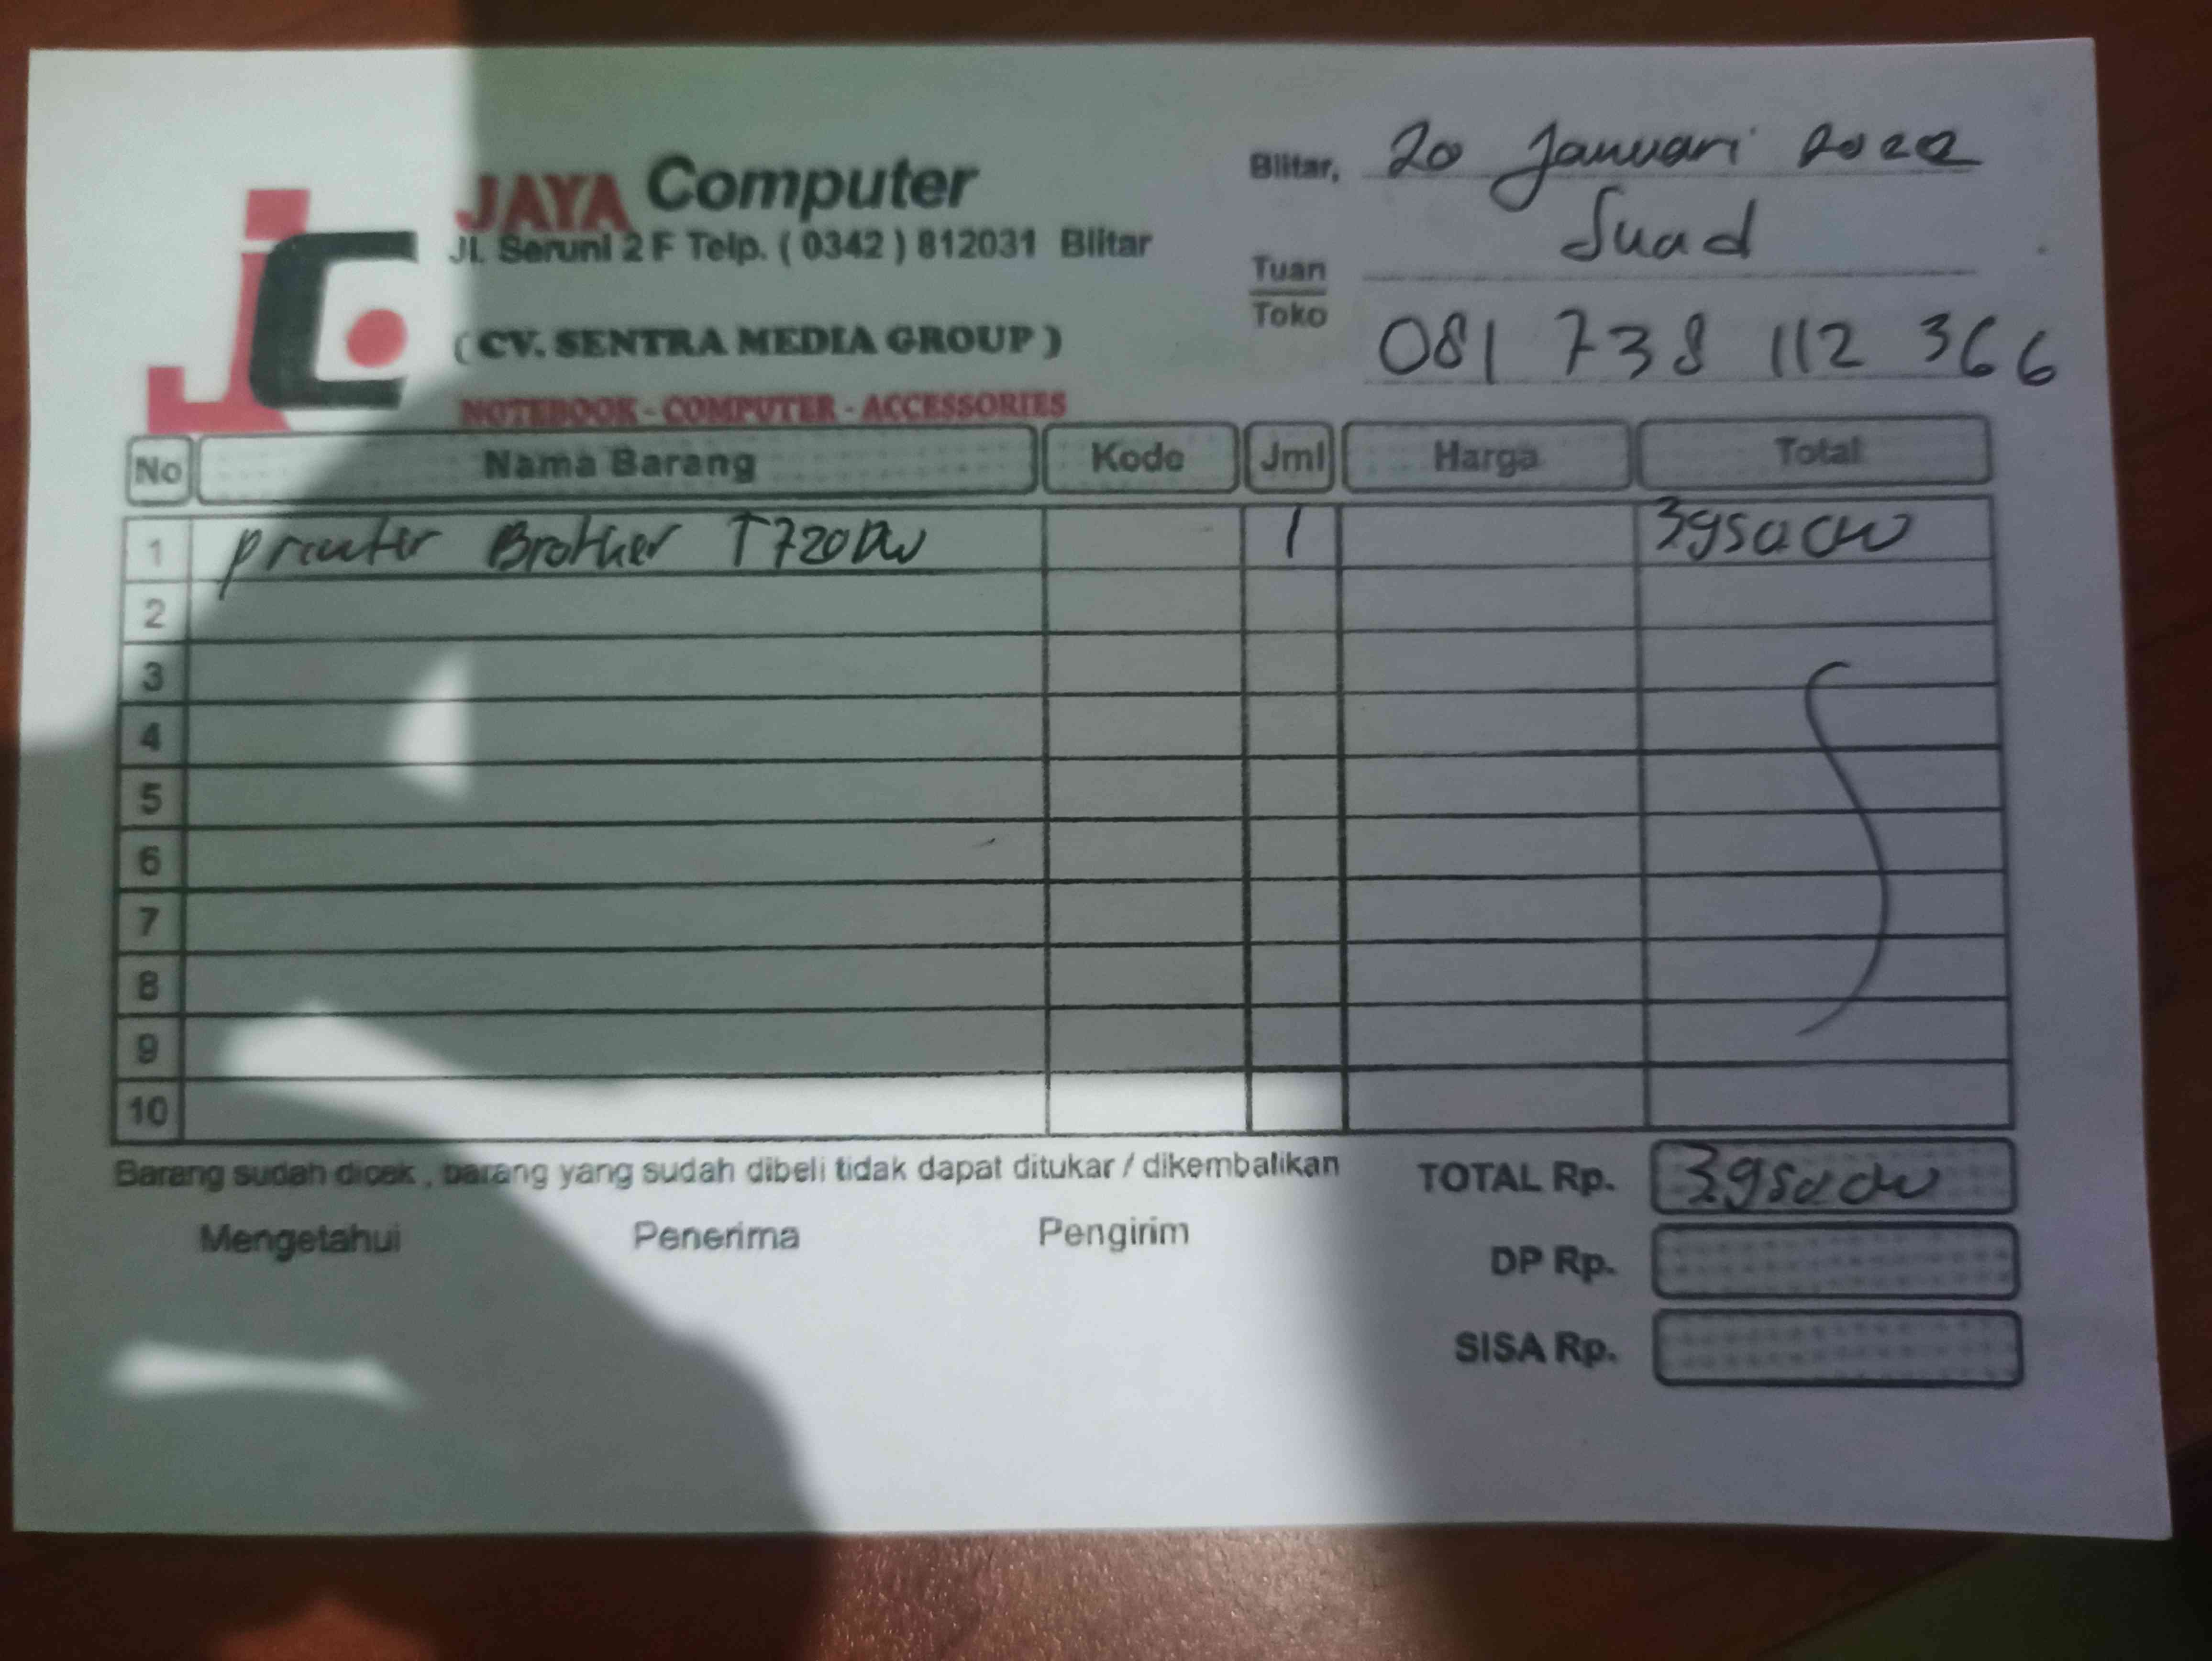 JC
JAYA Computer
Jl. Seruni 2 F Telp. ( 0342 ) 812031 Blitar
( CV. SENTRA MEDIA GROUP )
NOTEBOOK - COMPUTER - ACCESSORIES
Blitar, 20 Januari 2022
Tuan Suad
Toko
081 738 112 366
No Nama Barang Kode Jml Harga Total
1 printer Brother T720DW 1 3950000
2
3
4
5
6
7
8
9
10
Barang sudah dicek , barang yang sudah dibeli tidak dapat ditukar / dikembalikan
TOTAL Rp. 3950000
Mengetahui Penerima Pengirim
DP Rp.
SISA Rp.